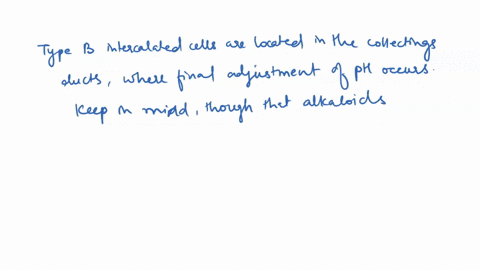 Type B intercalated cells are located in the collectings
ducts, where final adjustment of pH occurs.
Keep in mind, though that alkaloids